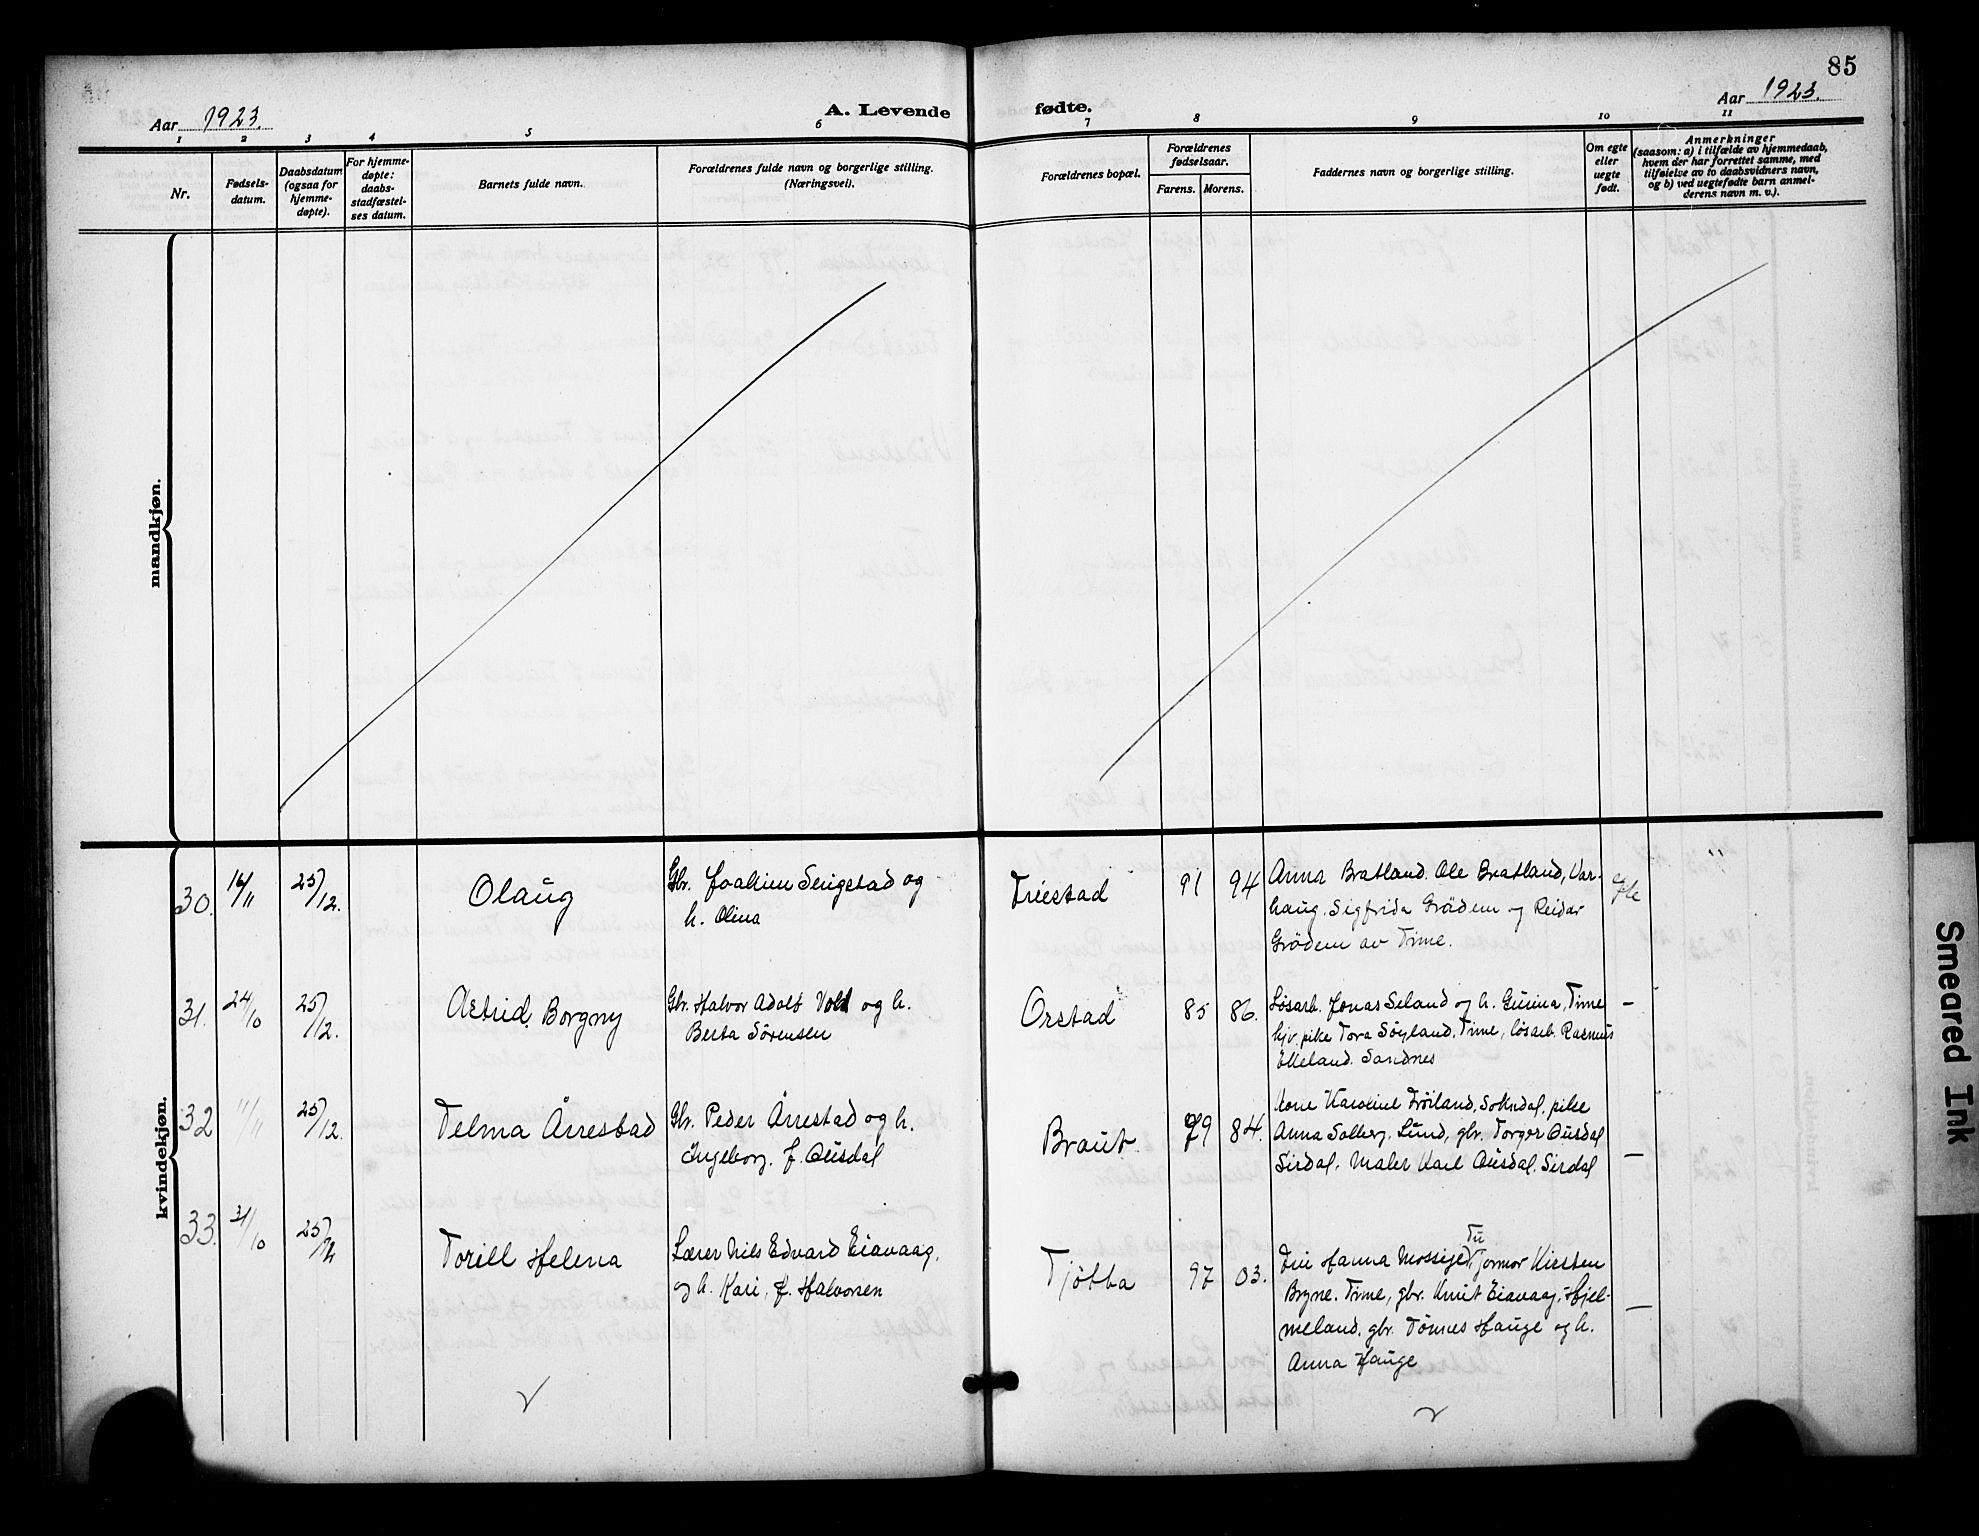 85
Aar 1923.
A. Levende
fødte.
Aar 1923.
1 2 3 4 5 6 7 8 9 10 11
Nr.
Fødsels-
datum.
Daabsdatum
(ogsaa for
hjemme-
døpte).
For hjemme-
døpte:
daabs-
stadfæstel-
ses datum.
Barnets fulde navn.
Forældrenes fulde navn og borgerlige stilling.
(Næringsvei).
Forældrenes bopæl.
Forældrenes
fødselsaar.
Farens. Morens.
Faddernes navn og borgerlige stilling.
Om egte
eller
uegte
født.
Anmerkninger
(saasom: a) i tilfælde av hjemmedaab,
hvem der har forrettet samme, med
tilføielse av to daabsvidners navn,
og b) ved uegtefødte barn anmel-
derens navn m. v.).
mandkjøn.
kvindekjøn.
30. 16/11 25/12. Olaug
Gbr. Joakim Serigstad og
h. Olina
Friestad 91 94
Anna Bratland. Ole Bratland, Var-
haug. Sigfrida Grödem og Reidar
Grödem av Time.
egte
31. 24/10 25/12. Astrid Borgny
Gbr. Halvor Adolf Vold og h.
Berta Sörensen
Orstad 85 86.
Løsarb. Jonas Seland og h. Gurina, Time
hjv. pike Tora Søyland, Time, løsarb. Rasmus
Elleland. Sandnes
—
32 11/11 25/12. Telma Årrestad
Gbr. Peder Årrestad og h.
Ingeborg, f. Ousdal
Braut. 79 84.
Kone Karoline Fröiland, Sokndal, pike
Anna Solberg, Lund, gbr. Torger Ousdal
Sirdal. Maler Karl Ousdal. Sirdal
—
33. 31/10 25/12 Torill Helena
Lærer Nils Edvard Eiavaag.
og h. Kari, f. Halvorsen
Tjötta 97 03.
Tu
Frk Hanna Mossige, Jormor Kirsten
Bryne. Time, gbr. Knut Eiavaag, Hjel-
meland. gbr. Tönnes Hauge og h.
Anna Hauge
—
Smeared Ink